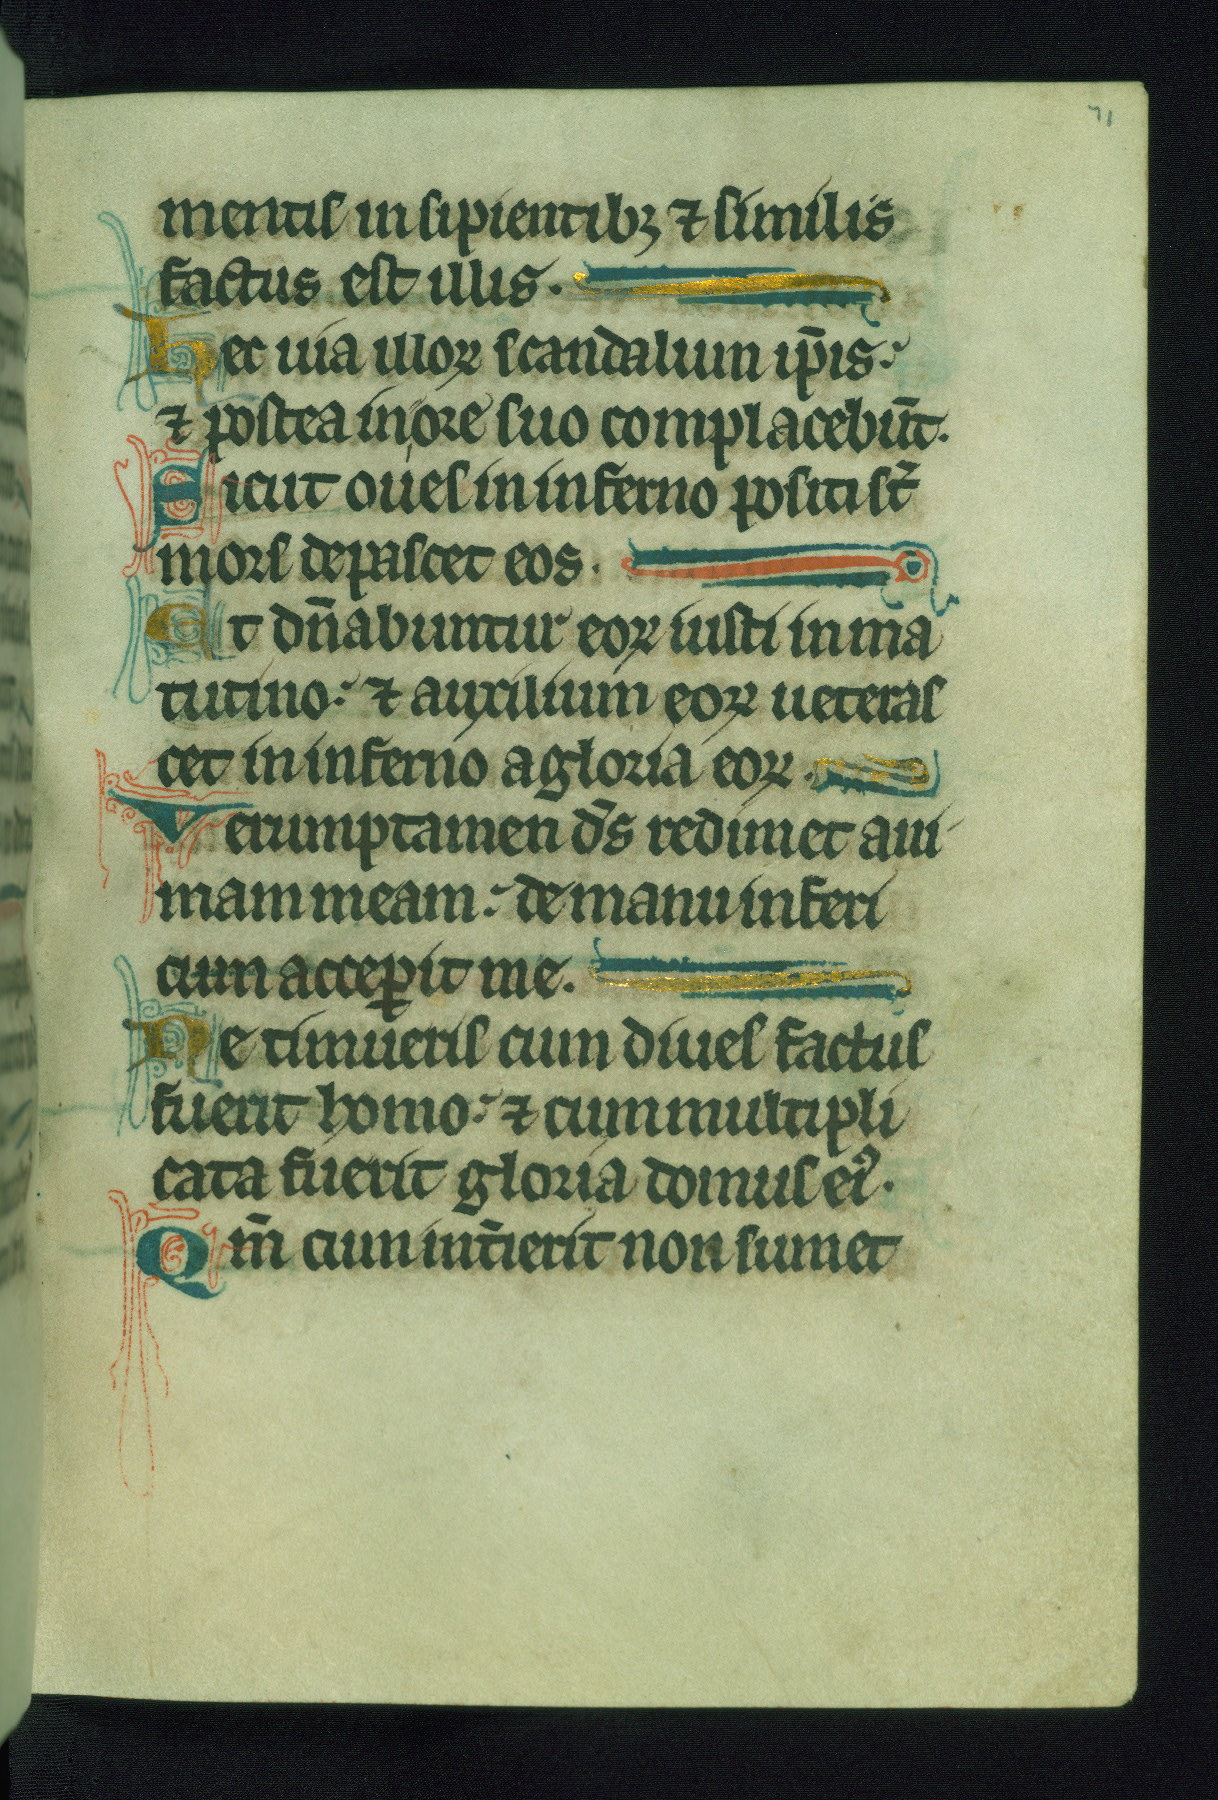 71
mentis insipientibꝫ ⁊ similis
factus est illis.
Hec uia illoꝝ scandalum ip̄is:
⁊ postea in ore suo complacebūt.
Sicut oues in inferno positi st̄
mors depascet eos.
Et dn̄abuntur eoꝝ iusti in ma
tutino: ⁊ auxilium eoꝝ ueteras
cet in inferno a gloria eoꝝ.
Verumptamen ds̄ redimet ani
mam meam: de manu inferi
cum acceꝑit me.
Ne timueris cum diues factus
fuerit homo: ⁊ cum multipli
cata fuerit gloria domus eiꝰ.
Qm̄ cum int̄ierit non sumet